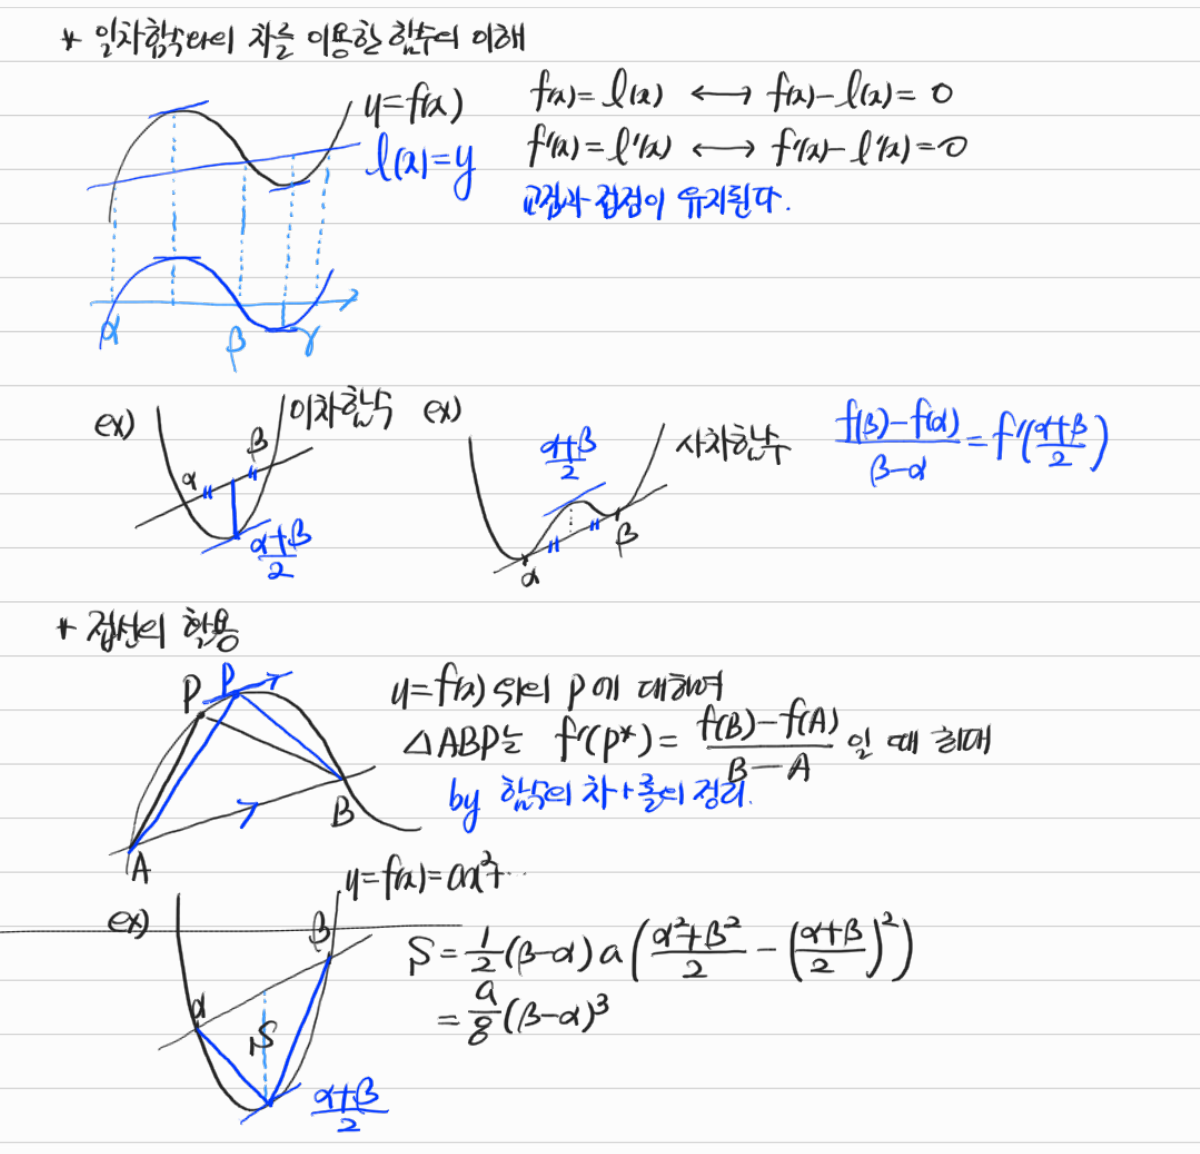 * 일차함수와의 차를 이용한 함수의 이해
y=f(x)
l(x)=y
f(x)=l(x) ↔ f(x)-l(x)=0
f'(x)=l'(x) ↔ f'(x)-l'(x)=0
교점과 접점이 유지된다.
α β γ
ex) 이차함수
α β
(α+β)/2
ex) 사차함수
(α+β)/2
α β
(f(β)-f(α))/(β-α)=f'((α+β)/2)
* 접선의 활용
P P
A B
y=f(x) 위의 P에 대하여
△ABP는 f'(P*)=(f(B)-f(A))/(B-A) 일 때 최대
by 함수의 차+롤의 정리.
ex) y=f(x)=ax²+...
α β
S
(α+β)/2
S=1/2(β-α)a((α²+β²)/2-((α+β)/2)²)
=a/8(β-α)³